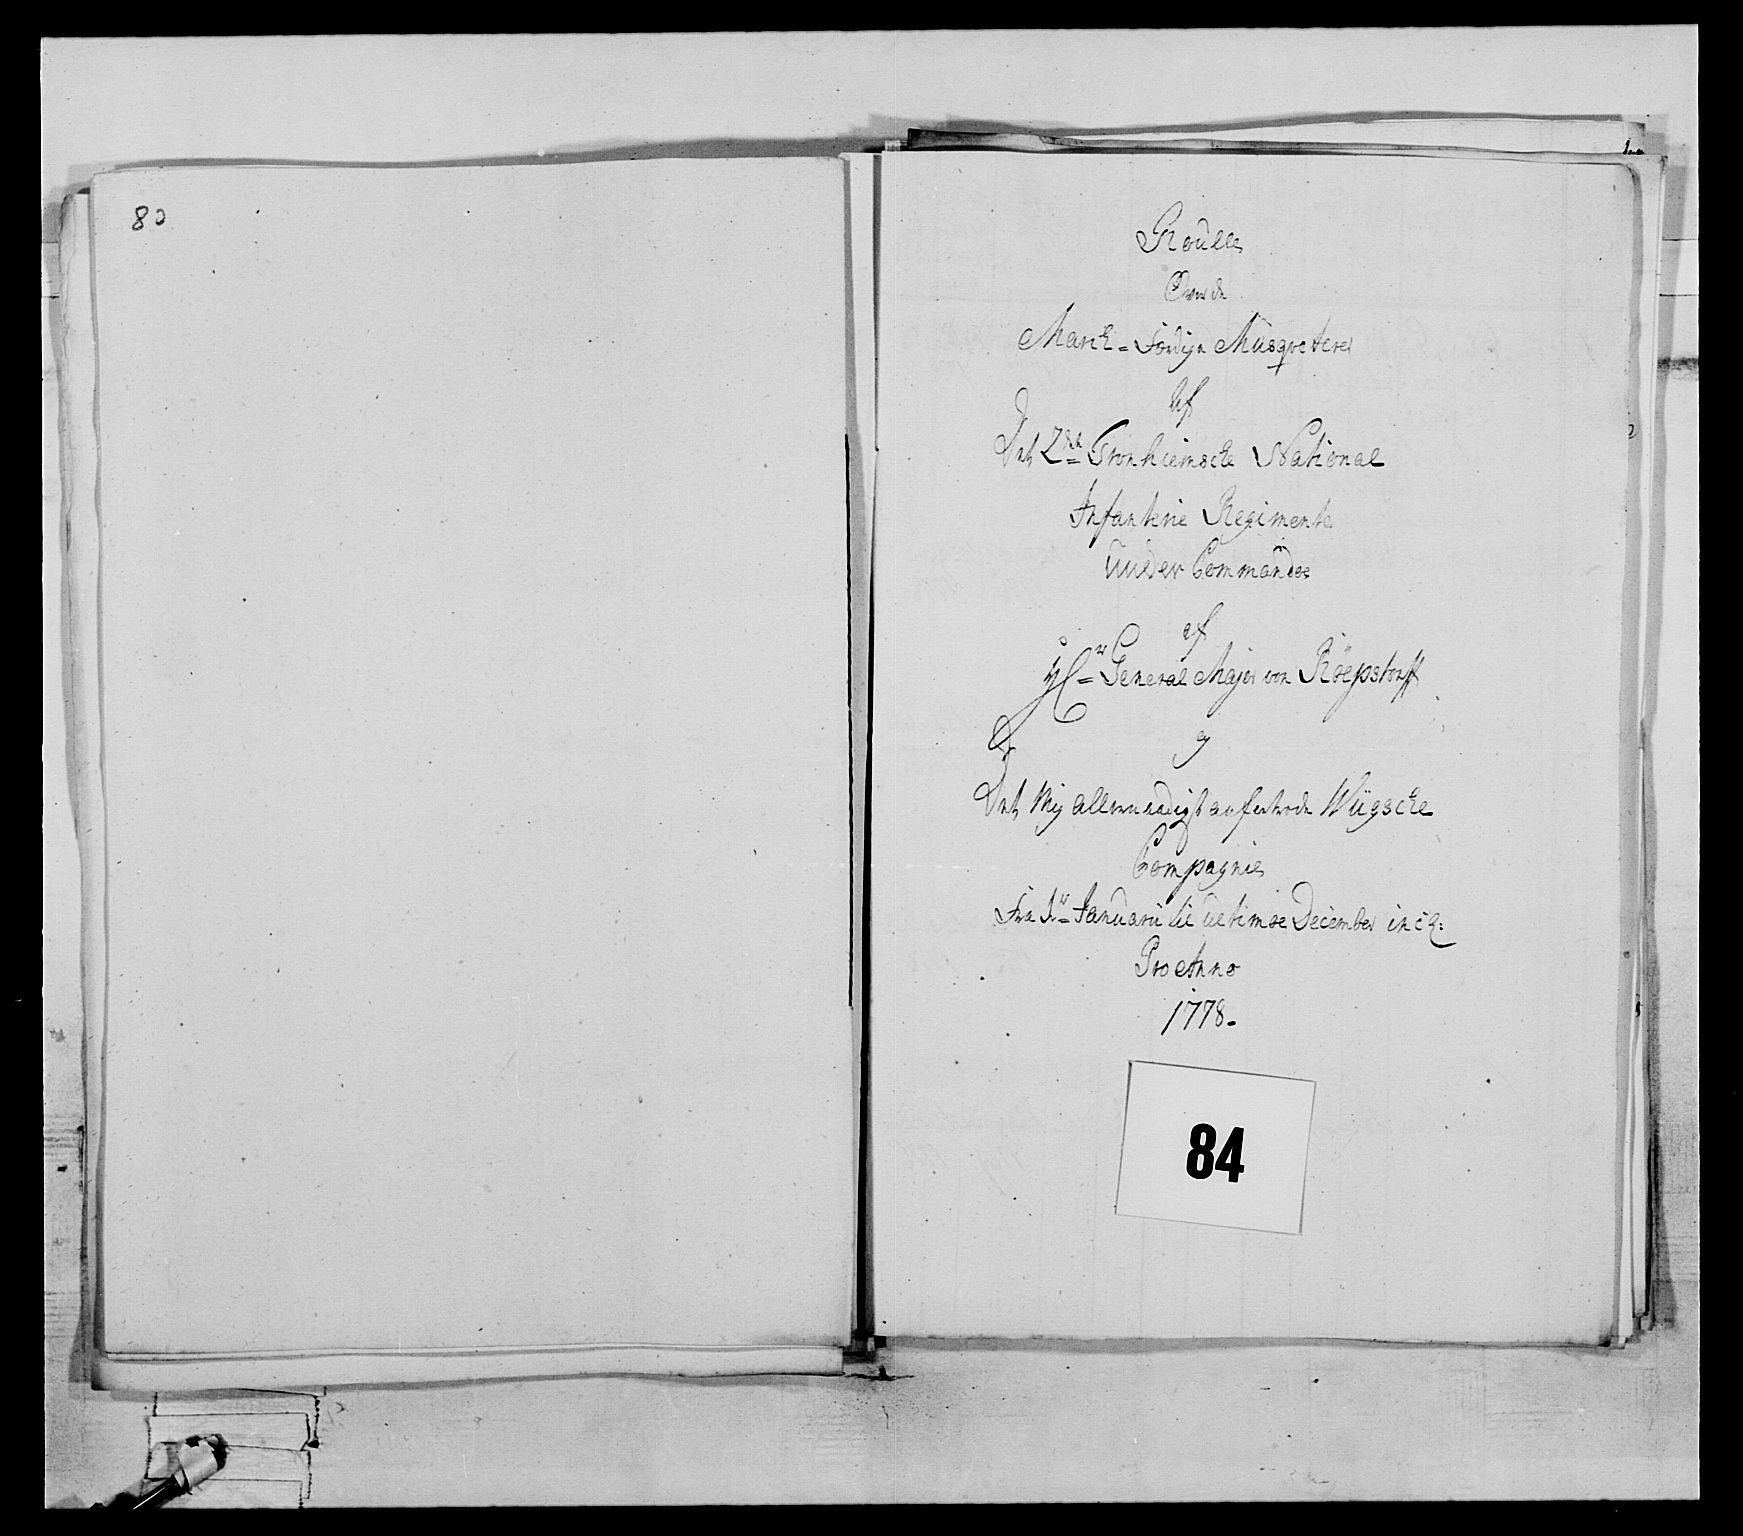 80
Roulle
Over de
March-Færdige Musqveterer
Af
Det 2det Tronhiemsche National
Infanterie Regimente
Under Commandoe
af
Hr General Major von Röepstorff
og
Det Mig allernaadigst anfortrode Wügsche
Compagnie
Fra 1te Januarii til ultimoe December incl:
Pro Anno
1778.
84